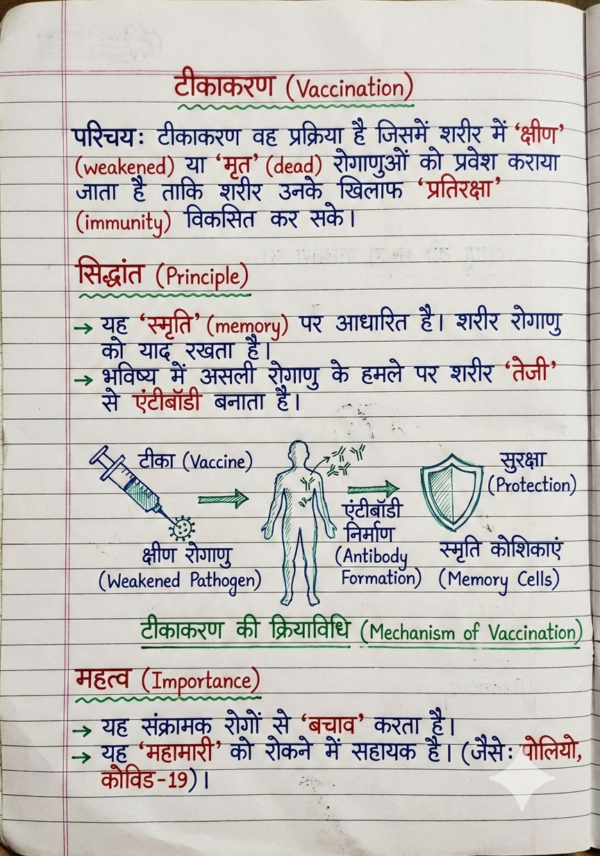 टीकाकरण (Vaccination)
परिचय: टीकाकरण वह प्रक्रिया है जिसमें शरीर में 'क्षीण'
(weakened) या 'मृत' (dead) रोगाणुओं को प्रवेश कराया
जाता है ताकि शरीर उनके खिलाफ 'प्रतिरक्षा'
(immunity) विकसित कर सके।
सिद्धांत (Principle)
→ यह 'स्मृति' (memory) पर आधारित है। शरीर रोगाणु
को याद रखता है।
→ भविष्य में असली रोगाणु के हमले पर शरीर 'तेजी'
से एंटीबॉडी बनाता है।
टीका (Vaccine)
क्षीण रोगाणु
(Weakened Pathogen)
एंटीबॉडी
निर्माण
(Antibody
Formation)
सुरक्षा
(Protection)
स्मृति कोशिकाएं
(Memory Cells)
टीकाकरण की क्रियाविधि (Mechanism of Vaccination)
महत्व (Importance)
→ यह संक्रामक रोगों से 'बचाव' करता है।
→ यह 'महामारी' को रोकने में सहायक है। (जैसे: पोलियो,
कोविड-19)।